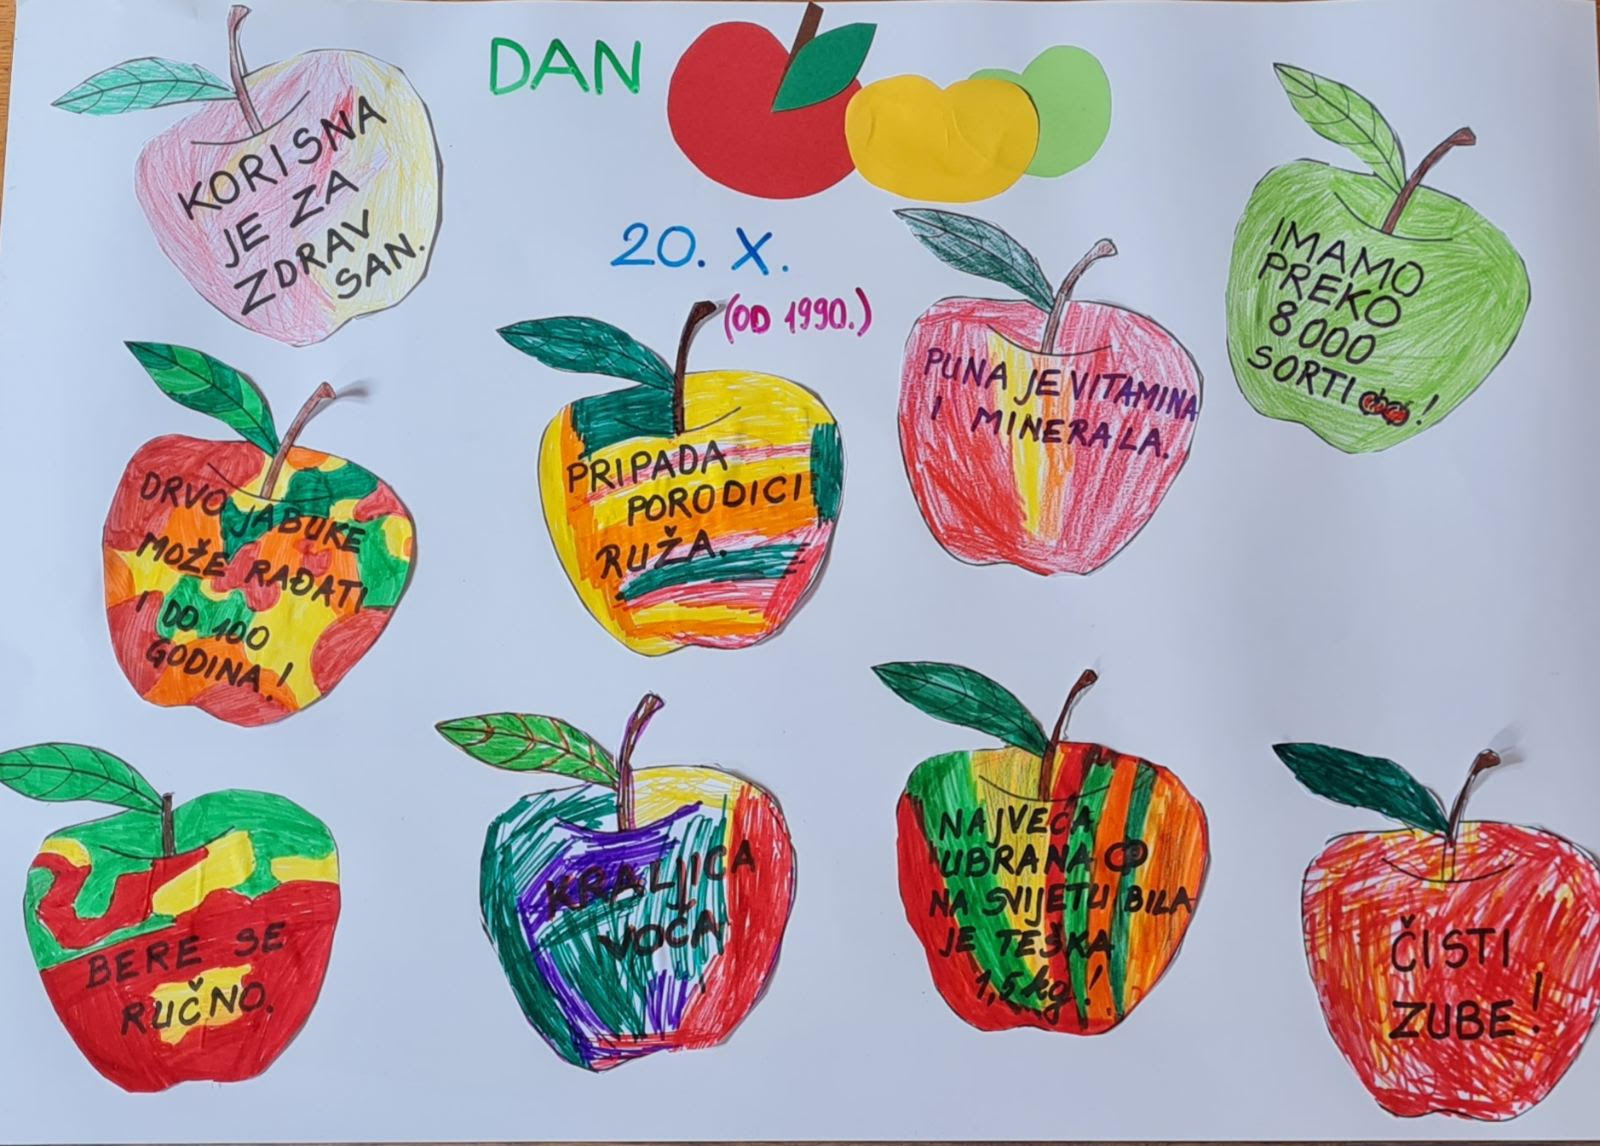 DAN
20. X.
(OD 1990.)
KORISNA
JE ZA
ZDRAV
SAN.
IMAMO
PREKO
8000
SORTI !
PUNA JE VITAMINA
I MINERALA.
PRIPADA
PORODICI
RUŽA.
DRVO JABUKE
MOŽE RAĐATI
I DO 100
GODINA!
BERE SE
RUČNO.
KRALJICA
VOĆA!
NAJVEĆA
UBRANA
NA SVIJETU BILA
JE TEŠKA
1,5 kg!
ČISTI
ZUBE!